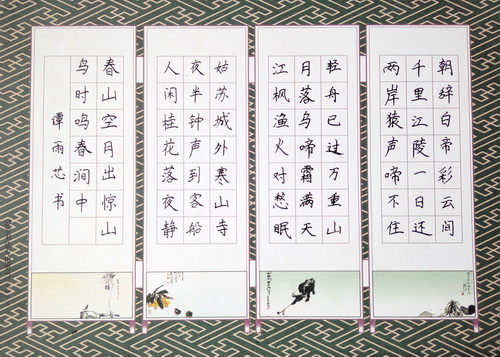 朝辞白帝彩云间
千里江陵一日还
两岸猿声啼不住
轻舟已过万重山
月落乌啼霜满天
江枫渔火对愁眠
姑苏城外寒山寺
夜半钟声到客船
人闲桂花落夜静
春山空月出惊山
鸟时鸣春涧中
谭雨芯书